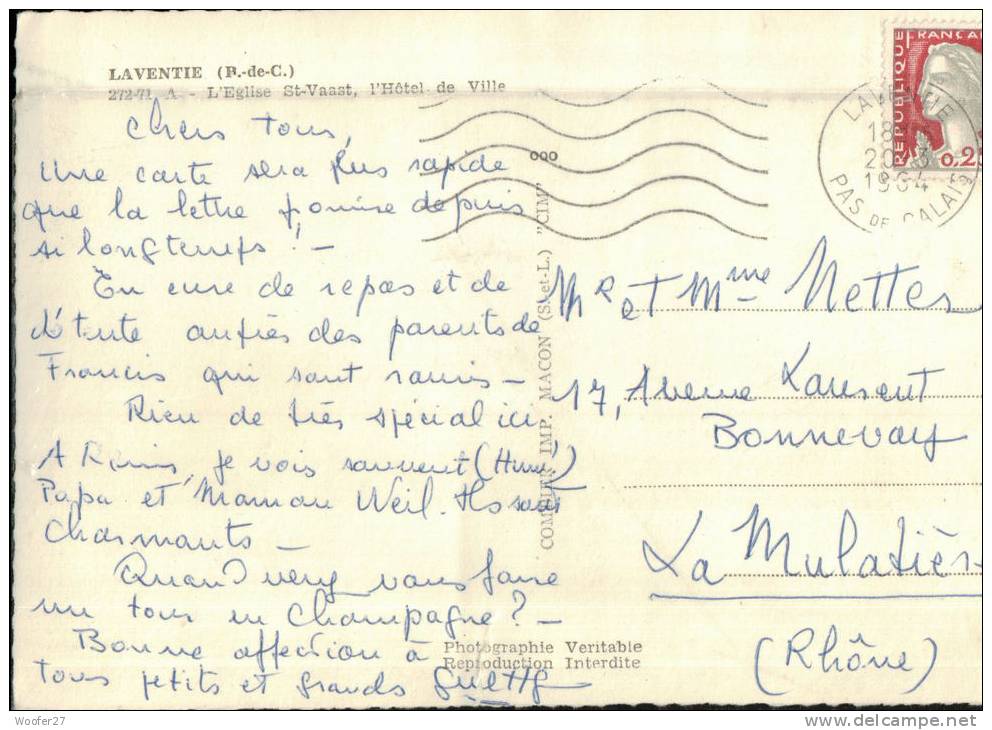 LAVENTIE (P.-de-C.)
272-71 A - L'Eglise St-Vaast, l'Hôtel de Ville
Chers tous,
une carte sera plus rapide
que la lettre promise depuis
si longtemps! -
En cure de repos et de
d'étente auprès des parents de
Francis qui sont ravis -
Rien de très spécial ici
A Reims, je vois souvent
Papa et Maman Weil. Ils sont
Charmants -
Quand venez vous faire
un tour en Champagne? -
Bonne affection à
tous petits et grands
COMBIER IMP. MACON (S.-et-L.) "CIM"
Photographie Veritable
Reproduction Interdite
REPUBLIQUE FRANCAI
0,25
LAVENTIE
18
20 - 3
1964
PAS DE CALAIS
Mr et Mme Nettes
17, Avenue Laurent
Bonnevay
La Mulatiè
(Rhône)
Woofer27
delcampe.net